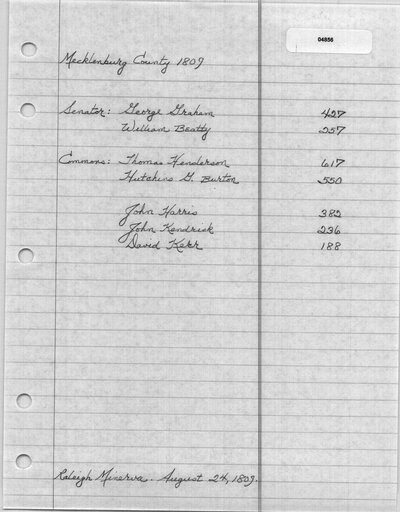 04856
Mecklenburg County 1809
Senator: George Graham 427
William Beatty 257
Commons: Thomas Henderson 617
Hutchins G. Burton 550
John Harris 382
John Kendrick 236
David Kerr 188
Raleigh Minerva. August 24, 1809.